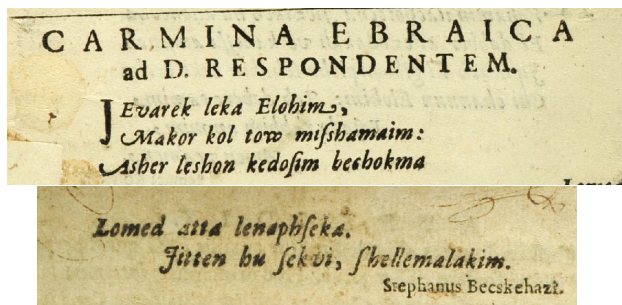 CARMINA EBRAICA
ad D. RESPONDENTEM.
JEvarek leka Elohim,
Makor kol tow misshamaim:
Asher leshon kedosim bechokma
Lomed
Lomed atta lenaphseka.
Jitten hu sekvi, shellemalakim.
Stephanus Becskehazi.